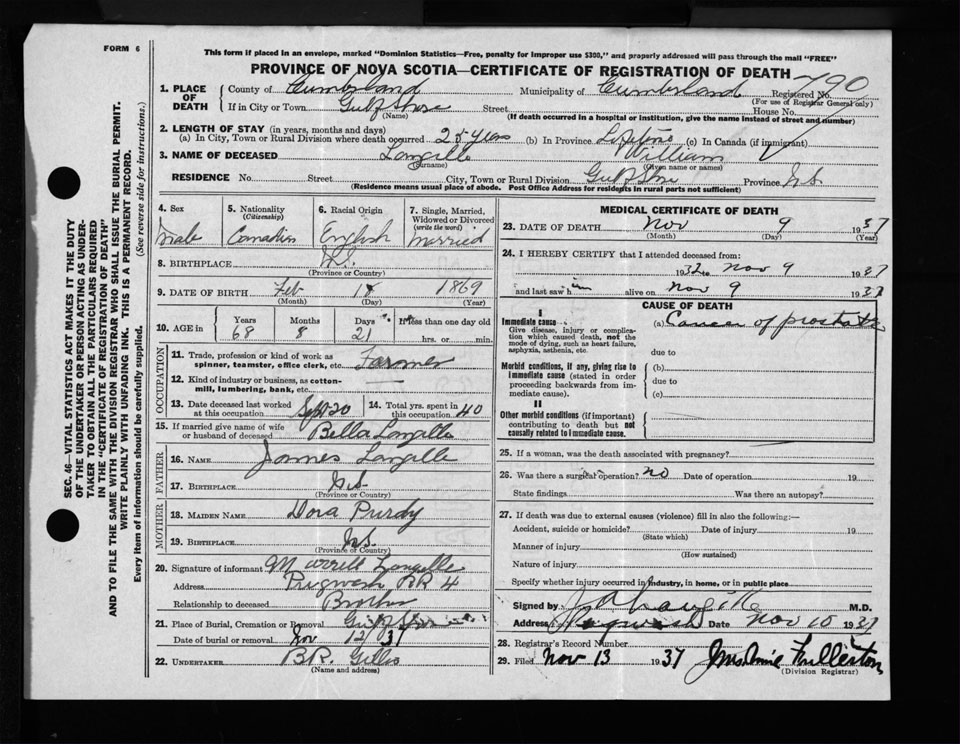 FORM 6
This form if placed in an envelope, marked "Dominion Statistics—Free, penalty for improper use $300," and properly addressed will pass through the mail "FREE"
PROVINCE OF NOVA SCOTIA—CERTIFICATE OF REGISTRATION OF DEATH 790
1. PLACE OF DEATH County of Cumberland Municipality of Cumberland Registered No.
(For use of Registrar General only)
If in City or Town Gulf Shore Street House No.
(Name) (If death occurred in a hospital or institution, give the name instead of street and number)
2. LENGTH OF STAY (in years, months and days)
(a) In City, Town or Rural Division where death occurred 25 years (b) In Province Lifetime (c) In Canada (if immigrant)
3. NAME OF DECEASED Langille William
(Surname) (Given name or names)
RESIDENCE No. Street City, Town or Rural Division Gulf Shore Province N.S.
(Residence means usual place of abode. Post Office Address for residents in rural parts not sufficient)
4. Sex 5. Nationality (Citizenship) 6. Racial Origin 7. Single, Married, Widowed or Divorced (write the word)
Male Canadian English Married
8. BIRTHPLACE N.S.
(Province or Country)
9. DATE OF BIRTH Feb 18 1869
(Month) (Day) (Year)
10. AGE in Years Months Days If less than one day old
68 8 21 hrs. or min.
OCCUPATION
11. Trade, profession or kind of work as spinner, teamster, office clerk, etc. Farmer
12. Kind of industry or business, as cotton-mill, lumbering, bank, etc.
13. Date deceased last worked at this occupation Sept 20 14. Total yrs. spent in this occupation 40
15. If married give name of wife or husband of deceased Bella Langille
FATHER
16. NAME James Langille
17. BIRTHPLACE N.S.
(Province or Country)
MOTHER
18. MAIDEN NAME Dora Purdy
19. BIRTHPLACE N.S.
(Province or Country)
20. Signature of informant Murrill Langille
Address Pugwash RR 4
Relationship to deceased Brother
21. Place of Burial, Cremation or Removal Gulf Shore
Date of burial or removal Nov 12/37
22. UNDERTAKER B.R. Gillis
(Name and address)
MEDICAL CERTIFICATE OF DEATH
23. DATE OF DEATH Nov 9 1937
(Month) (Day) (Year)
24. I HEREBY CERTIFY that I attended deceased from:
1932 to Nov 9 1937
and last saw him alive on Nov 9 1937
CAUSE OF DEATH
I
Immediate cause (a) Cancer of prostate
Give disease, injury or complication which caused death, not the mode of dying, such as heart failure, asphyxia, asthenia, etc.
due to
Morbid conditions, if any, giving rise to immediate cause (stated in order proceeding backwards from immediate cause).
(b)
due to
(c)
II
Other morbid conditions (if important) contributing to death but not causally related to immediate cause.
25. If a woman, was the death associated with pregnancy?
26. Was there a surgical operation? no Date of operation 19
State findings Was there an autopsy?
27. If death was due to external causes (violence) fill in also the following:—
Accident, suicide or homicide? Date of injury 19
(State which)
Manner of injury
(How sustained)
Nature of injury
Specify whether injury occurred in industry, in home, or in public place
Signed by M.D.
Address Pugwash Date Nov 10 1937
28. Registrar's Record Number
29. Filed Nov 13 1937 Fullerton
(Division Registrar)
SEC. 46—VITAL STATISTICS ACT MAKES IT THE DUTY
OF THE UNDERTAKER OR PERSON ACTING AS UNDER-
TAKER TO OBTAIN ALL THE PARTICULARS REQUIRED
IN THE "CERTIFICATE OF REGISTRATION OF DEATH"
AND TO FILE THE SAME WITH THE DIVISION REGISTRAR WHO SHALL ISSUE THE BURIAL PERMIT.
WRITE PLAINLY WITH UNFADING INK. THIS IS A PERMANENT RECORD.
Every item of information should be carefully supplied. (See reverse side for instructions.)